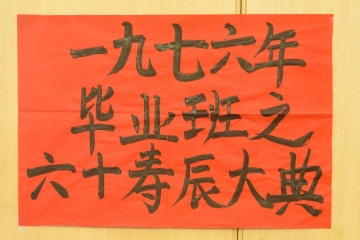 一九七六年
毕业班之
六十寿辰大典